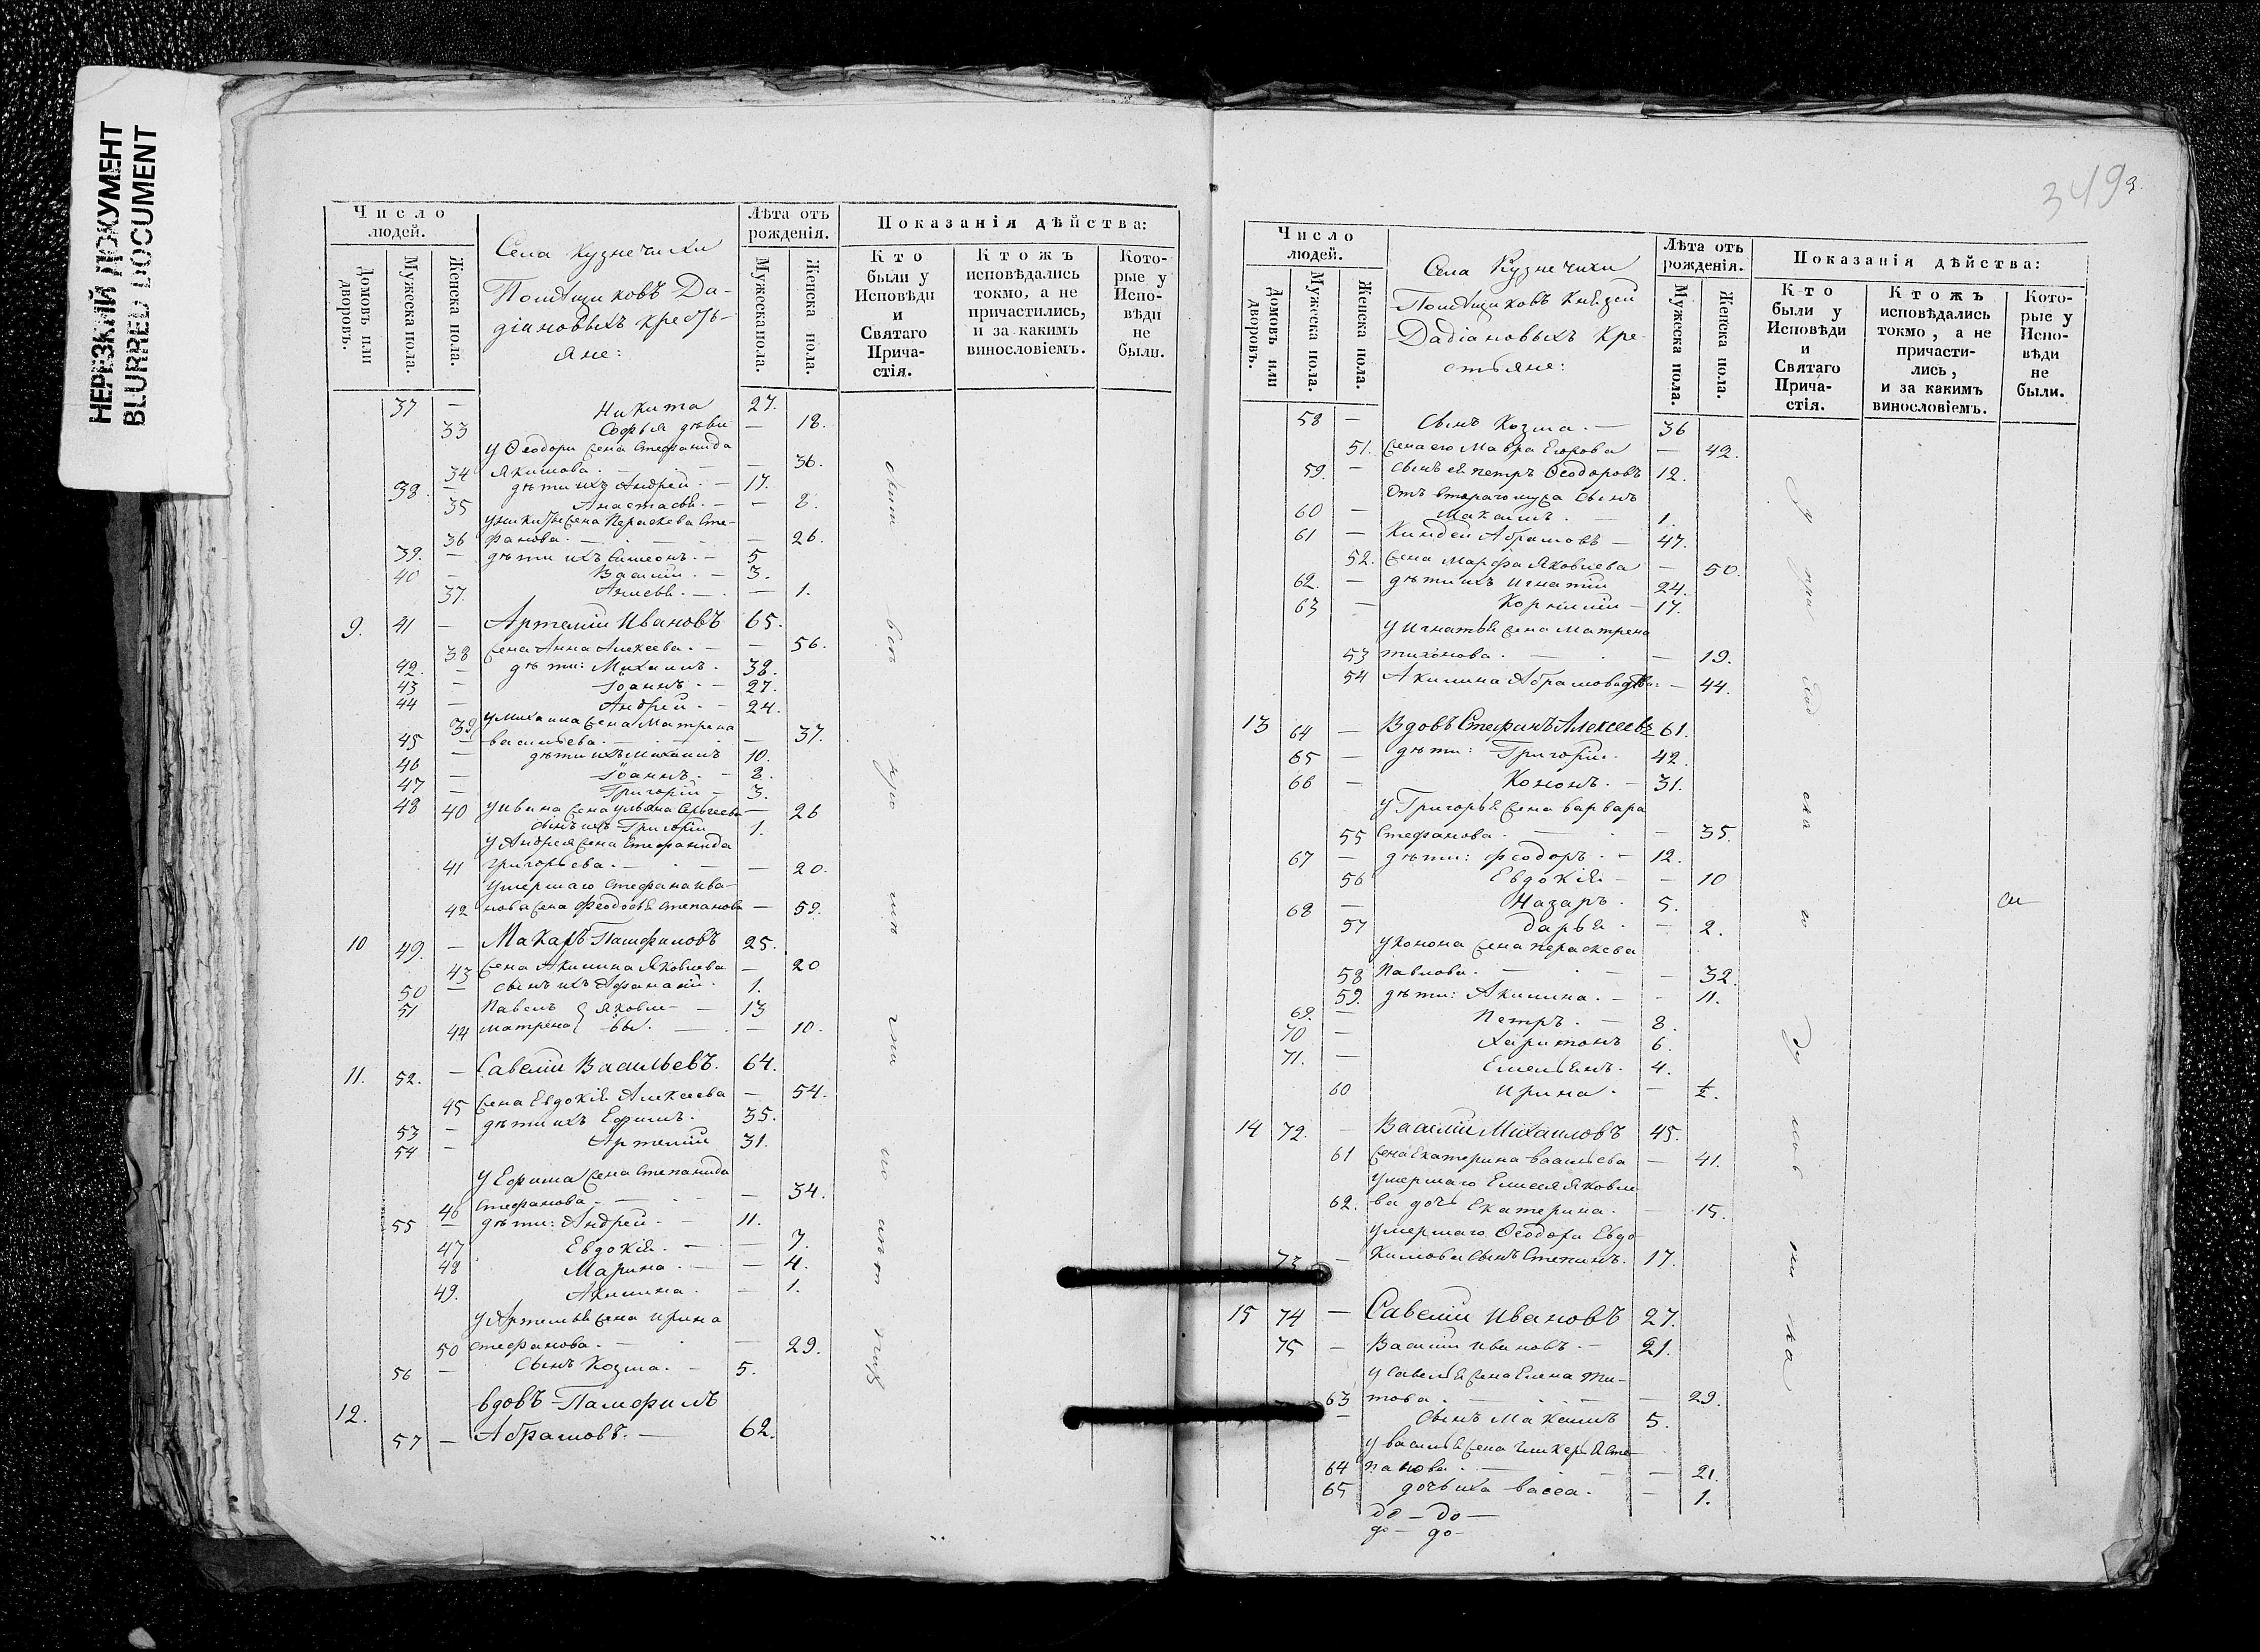 НЕРЕЗКИЙ ДОКУМЕНТ
BLURRED DOCUMENT
Число людей.
Домовъ или дворовъ.
Мужеска пола.
Женска пола.
Села Кузнечихи
Помѣщиковъ Да-
діановыхъ кресть-
яне:
Лѣта отъ рожденія.
Мужеска пола.
Женска пола.
Показанія дѣйства:
Кто были у Исповѣди и Святаго Причастія.
Ктожъ исповѣдались токмо, а не причастились, и за какимъ винословіемъ.
Которые у Исповѣди не были.
37 — Никита 27.
33 Софья дѣви — 18.
у Ѳеодора жена Стефанида
34 Якимова. — — 36.
38. — дѣти ихъ Андрей. — 17.
35 Анастасья. — — 8.
у Никиты жена Параскева Сте-
36 фанова. — — 26.
39. — дѣти ихъ Симеонъ. — 5
40 — Василій. — 3.
37. — 1.
9. 41 — Артемій Ивановъ 65.
38 жена Анна Алексеева. — — 56.
42. — дѣти: Михаилъ. 38.
43 — Іоаннъ. — 27.
44 — Андрей. — 24.
у Михаила жена Матрена
39 васильева. — — 37.
45 — дѣти ихъ Михаилъ 10.
46 — Іоаннъ. — 8.
47 — Григорій — 3.
40 у Ивана жена Ульяна — 26
48 сынъ ихъ Григорій 1.
у Андрея жена Стефанида
41 григорьева. — — 20.
умершаго Стефана Ива-
42 нова жена Феодосья Степанова — 59.
10 49. — Макаръ Памфиловъ 25.
43 жена Акилина Яковлева — 20
50 — сынъ ихъ Афанасій. 1.
51 Павелъ } Яковле- — 13
44 Матрена } -вы. — — 10.
11. 52. — Савелій Васильевъ. 64.
45 жена Евдокія Алексеева — 54.
53 — дѣти ихъ Ефимъ. 35.
54 — Артемій 31.
у Ефима жена Степанида
46 Стефанова. — — 34.
55 — дѣти: Андрей. — 11.
47 Евдокія. — — 7.
48 Марина. — — 4.
49. Акилина. — 1.
у Артемья жена Ирина
50 стефанова. — — 29.
56 — Сынъ Козма. — 5.
12. вдовъ Памфилъ
57 — Абрамовъ. — 62.
349
Число людей.
Домовъ или дворовъ.
Мужеска пола.
Женска пола.
Села Кузнечихи
Помѣщиковъ Князей
Дадіановыхъ Кре-
стьяне:
Лѣта отъ рожденія.
Мужеска пола.
Женска пола.
Показанія дѣйства:
Кто были у Исповѣди и Святаго Причастія.
Ктожъ исповѣдались токмо, а не причастились, и за какимъ винословіемъ.
Которые у Исповѣди не были.
58 — Сынъ Козма. — 36
51. жена его Мавра Егорова — 42.
59. — сынъ ея Петръ Ѳеодоровъ 12.
Отъ втораго мужа сынъ
60 — Максимъ. — 1.
61 — Киндей Абрамовъ — 47.
52. жена Марфа Яковлева — 50.
62. — дѣти ихъ Игнатій 24.
63 — Корнилій — 17.
у Игнатья жена Матрена
53 тихонова. — — 19.
54 Акилина Абрамова — 44.
13 64 — Вдовъ Стефанъ Алексеевъ 61.
65 — дѣти: Григорій. 42.
66 — Кононъ. — 31.
у Григорья жена варвара
55 Стефанова. — — 35.
67 — дѣти: Феодоръ. — 12.
56 Евдокія — — 10
68 — Назаръ. 5.
57 Дарья. — 2.
у Конона жена параскева
58 Павлова. — — 32.
59. дѣти: Акилина. — — 11.
69. — Петръ. — 8.
70 — Харитонъ 6.
71. — Емельянъ. 4.
60 Ирина. — ½.
14 72. — Василій Михаиловъ 45.
61 жена Екатерина васильева — 41.
умершаго Елисея Яковле-
62. ва дочь Екатерина. — 15.
умершаго Ѳеодора Евдо-
73 — кимова сынъ Степанъ. 17.
15 74 — Савелій Ивановъ 27.
75 — Василій Ивановъ. — 21.
у Савелья жена Елена Ти-
63 това. — — 29.
— Сынъ Максимъ 5.
у васильья жена Сте-
64 панова. — — 21.
65 дочь ихъ васса. — — 1.
до — до —
до — до —